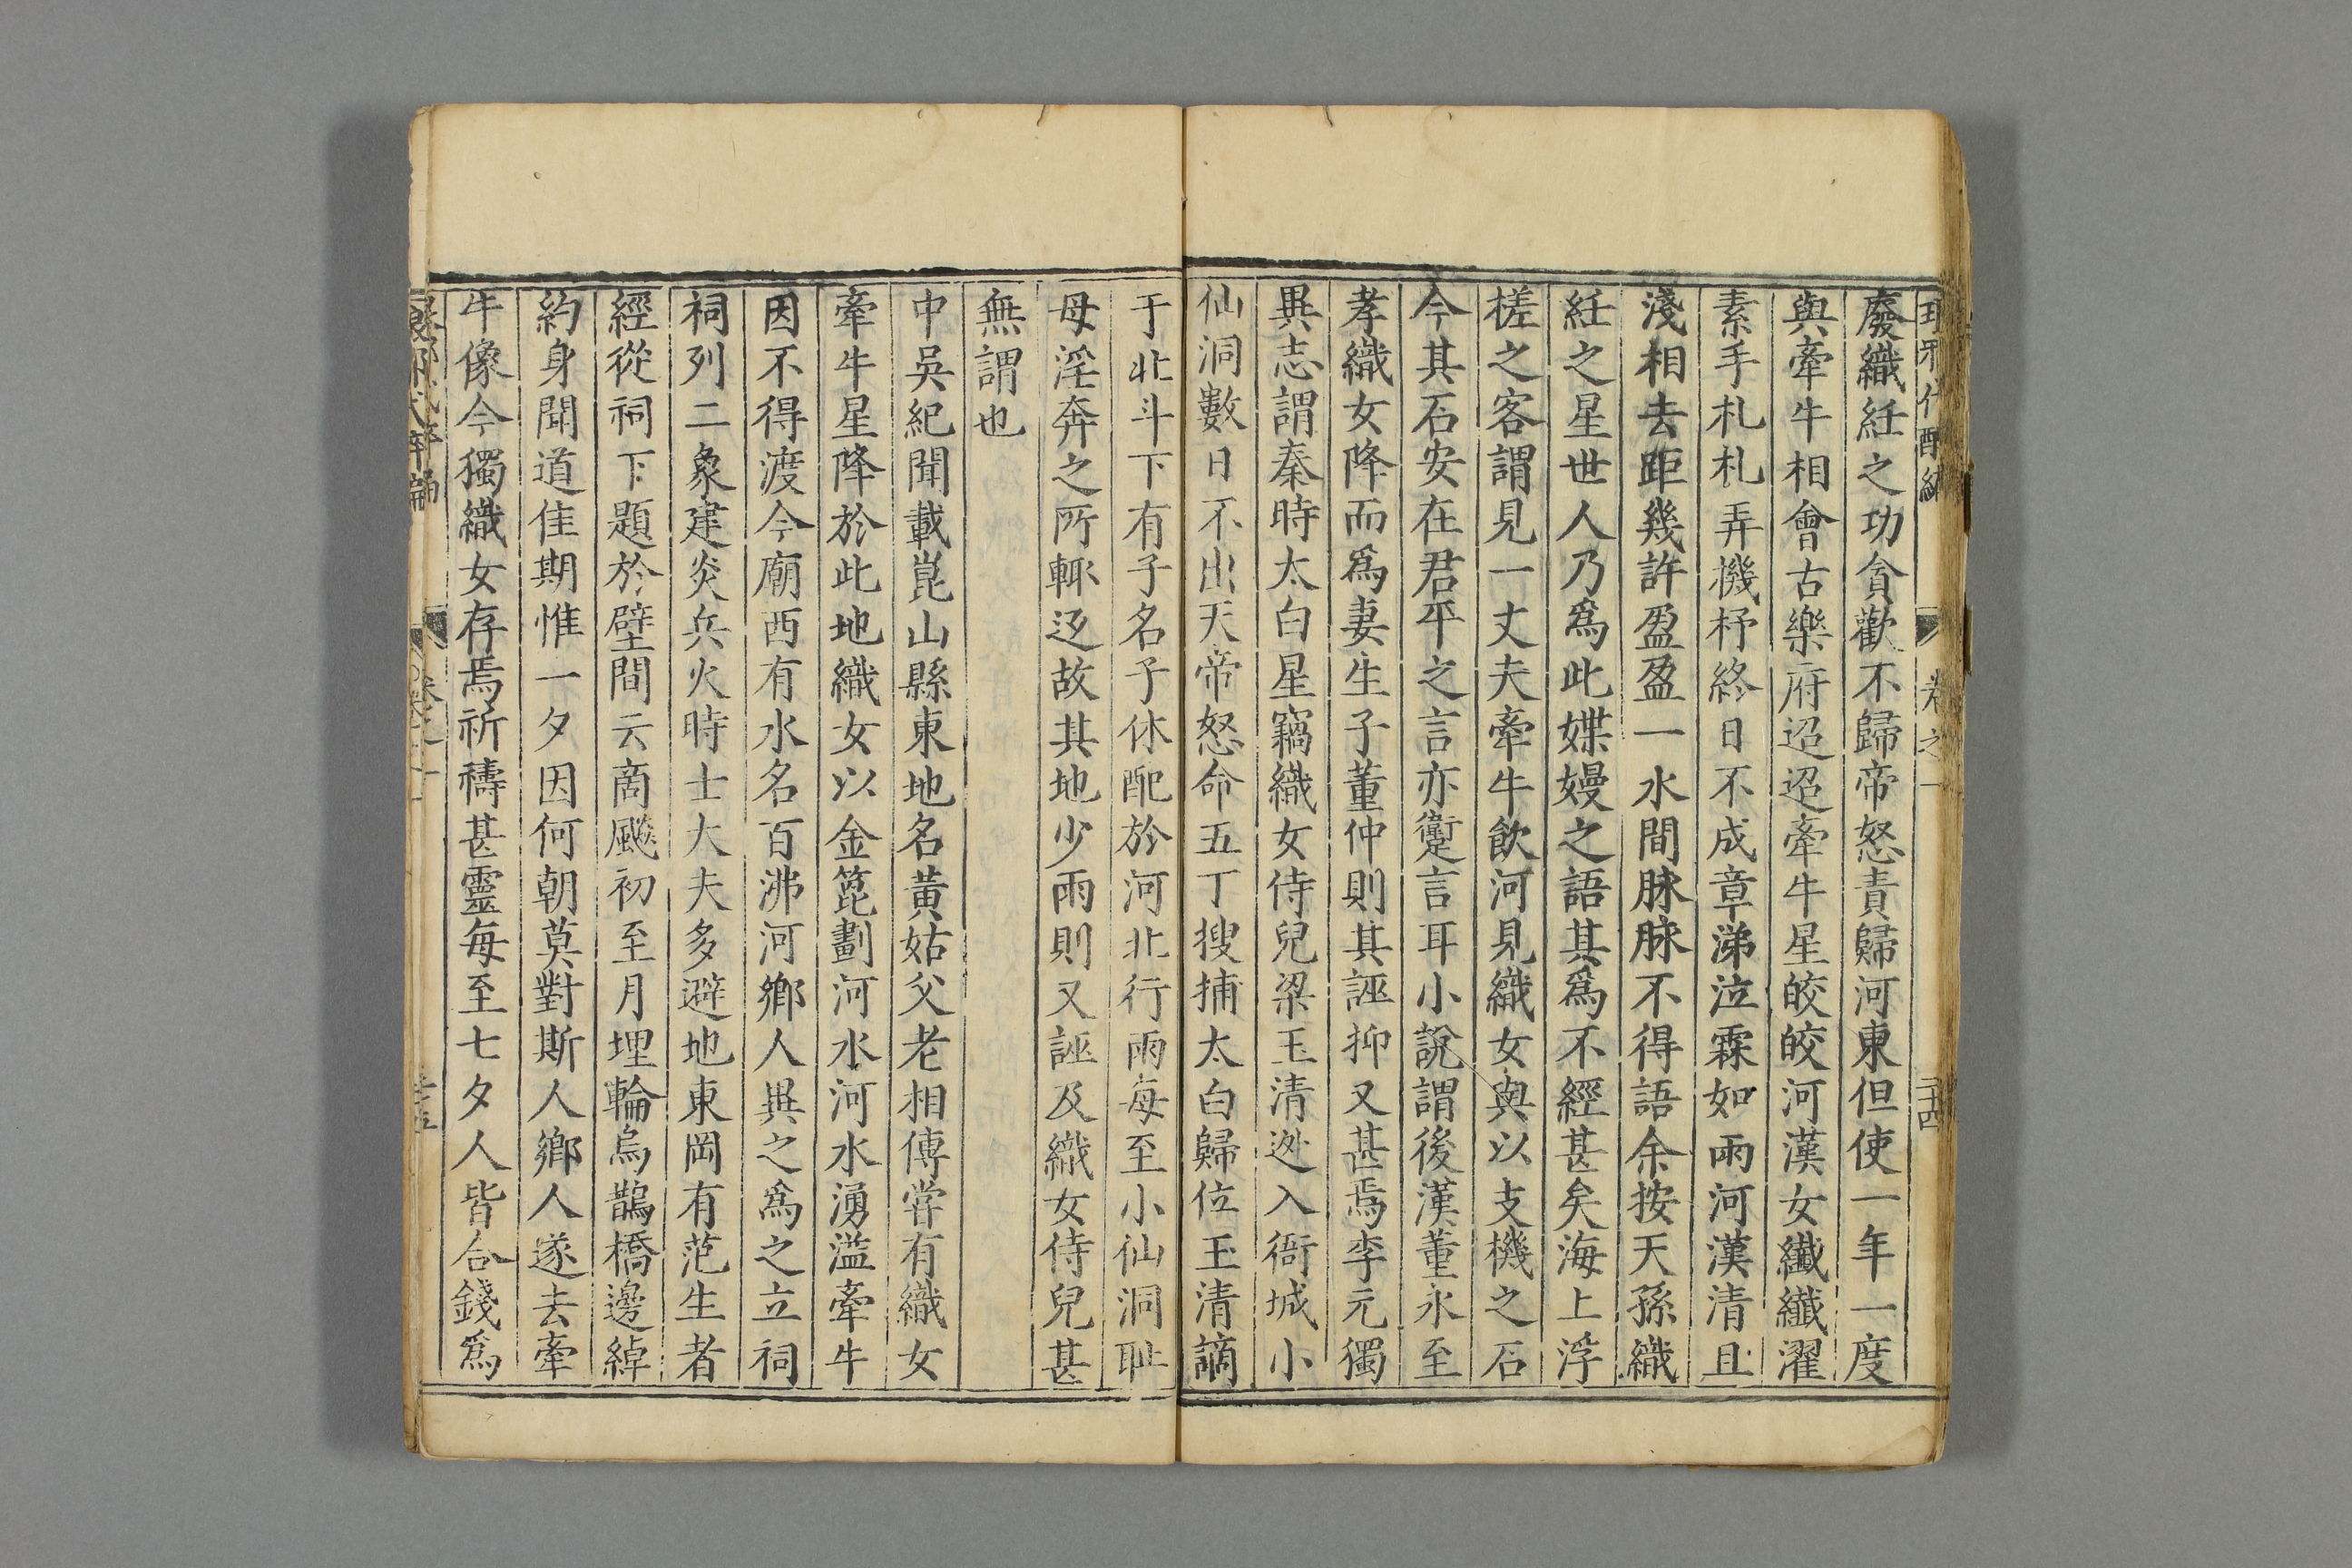 廢織紝之功貪歡不歸帝怒責歸河東但使一年一度
與牽牛相會古樂府迢迢牽牛星皎皎河漢女纖纖濯
素手札札弄機杼終日不成章涕泣霖如雨河漢清且
淺相去距幾許盈盈一水間脉脉不得語余按天孫織
紝之星世人乃爲此媟嫚之語其爲不經甚矣海上浮
槎之客謂見一丈夫牽牛飲河見織女與以支機之石
今其石安在君平之言亦躗言耳小說謂後漢董永至
孝織女降而爲妻生子董仲則其誣抑又甚焉李元獨
異志謂秦時太白星竊織女侍兒梁玉清逃入衙城小
仙洞數日不出天帝怒命五丁搜捕太白歸位玉清謫
于北斗下有子名子休配於河北行雨每至小仙洞耻
母淫奔之所輒返故其地少雨則又誣及織女侍兒甚
無謂也
中吳紀聞載崑山縣東地名黃姑父老相傳嘗有織女
牽牛星降於此地織女以金篦劃河水河水湧溢牽牛
因不得渡今廟西有水名百沸河鄉人異之爲之立祠
祠列二象建炎兵火時士大夫多避地東岡有范生者
經從祠下題於壁間云商飈初至月埋輪烏鵲橋邊綽
約身聞道佳期惟一夕因何朝莫對斯人鄉人遂去牽
牛像今獨織女存焉祈禱甚靈每至七夕人皆合錢爲
卷之一
二十四